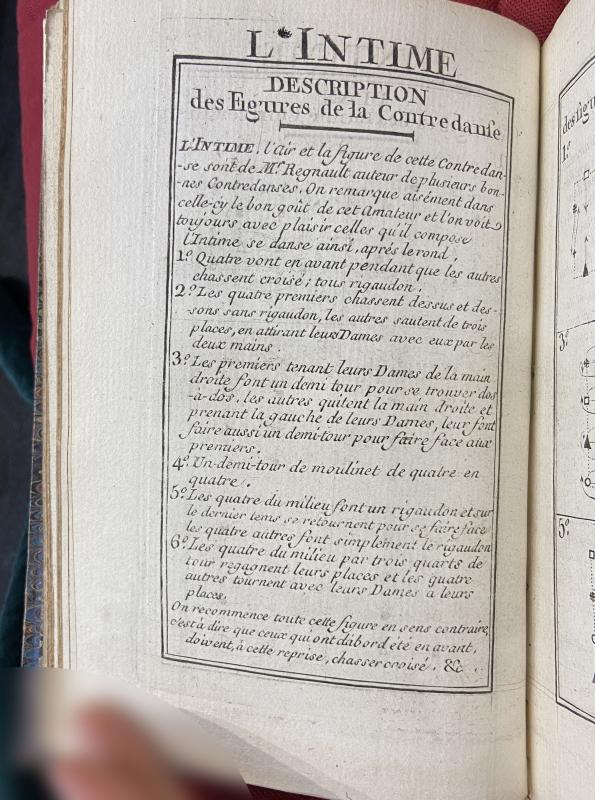 L'INTIME
DESCRIPTION
des Figures de la Contredanse
L'INTIME, l'air et la figure de cette Contredan-
-se sont de Mr. Regnault auteur de plusieurs bon-
-nes Contredanses. On remarque aisément dans
celle-cy le bon goût de cet Amateur et l'on voit
toujours avec plaisir celles qu'il compose
l'Intime se danse ainsi, aprés le rond,
1.º Quatre vont en avant pendant que les autres
chassent croisé; tous rigaudon.
2.º Les quatre premiers chassent dessus et des-
-sous sans rigaudon, les autres sautent de trois
places, en attirant leurs Dames avec eux par les
deux mains.
3.º Les premiers tenant leurs Dames de la main
droite font un demi tour pour se trouver dos
-à-dos, les autres quitent la main droite et
prenant la gauche de leurs Dames, leur font
faire aussi un demi-tour pour faire face aux
premiers.
4.º Un demi-tour de moulinet de quatre en
quatre.
5.º Les quatre du milieu font un rigaudon et sur
le dernier tems se retournent pour se faire face
les quatre autres font simplement le rigaudon
6.º Les quatre du milieu par trois quarts de
tour regagnent leurs places et les quatre
autres tournent avec leurs Dames a leurs
places.
On recommence toute cette figure en sens contraire,
c'est à dire que ceux qui ont d'abord été en avant,
doivent, à cette reprise, chasser croisé. &c.
des figu
1.º
3.º
5.º